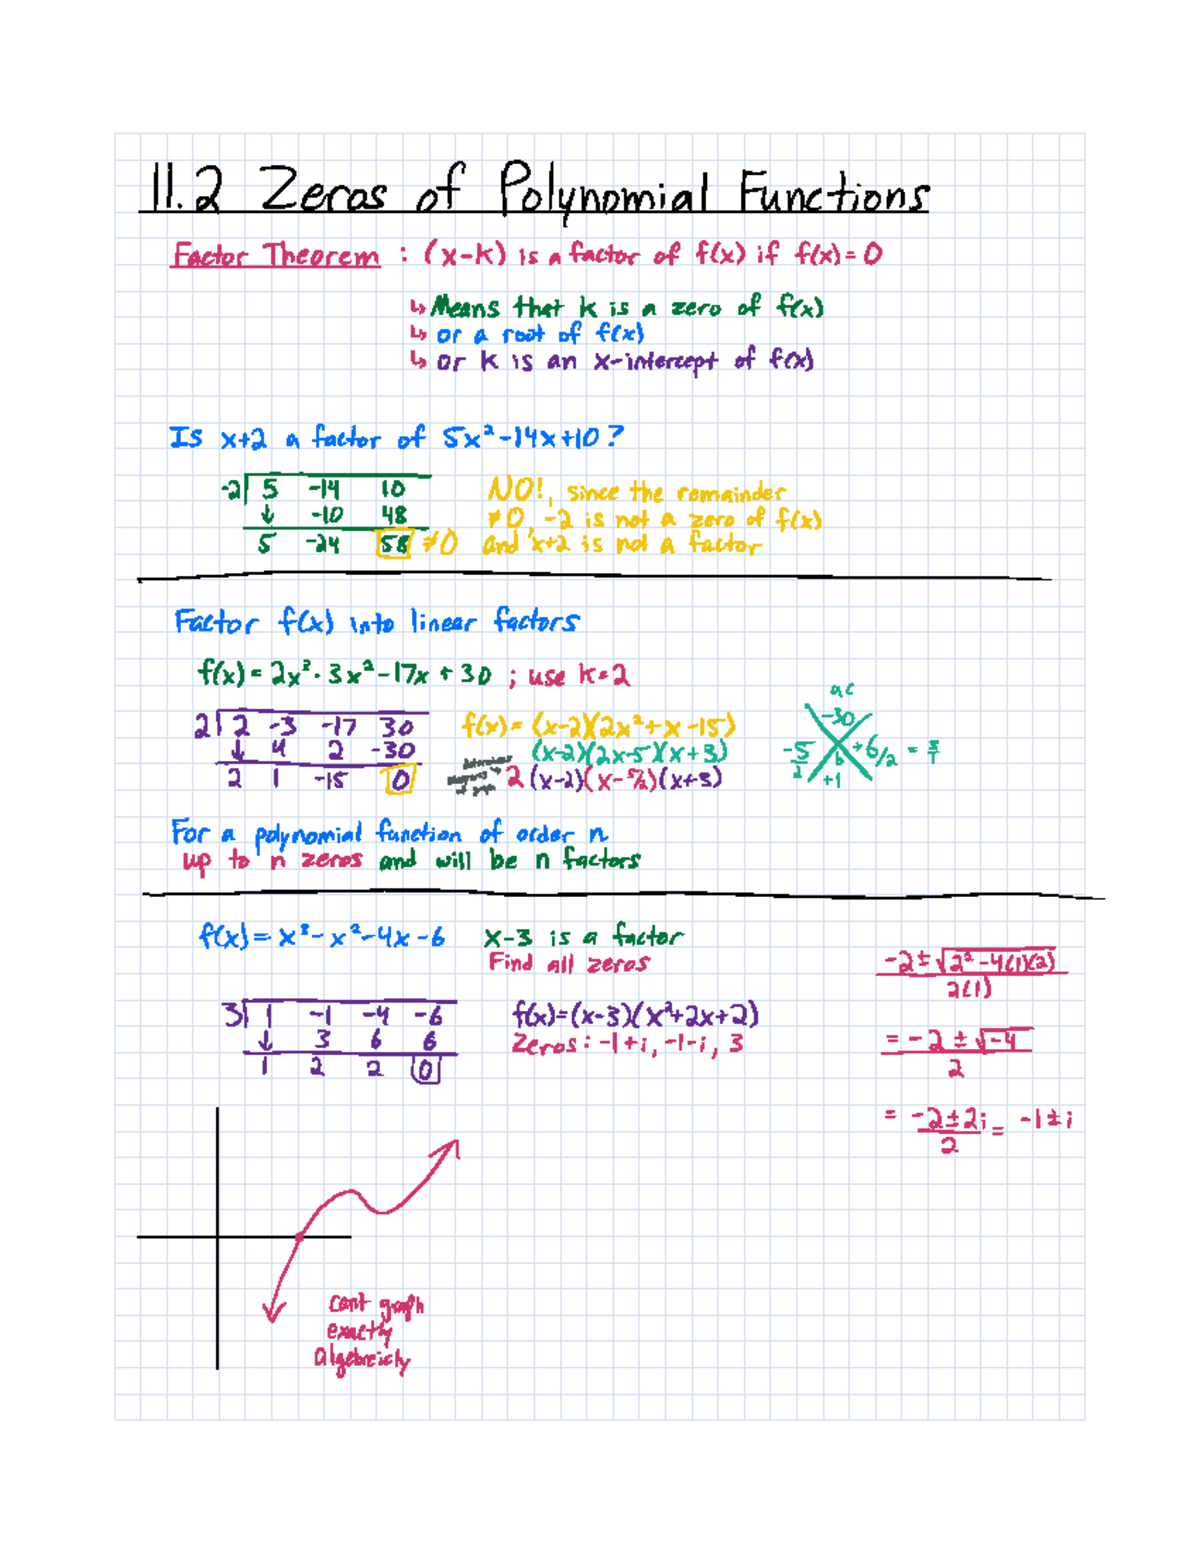 11.2 Zeros of Polynomial Functions
Factor Theorem : (x-k) is a factor of f(x) if f(x)=0
↳ Means that k is a zero of f(x)
↳ or a root of f(x)
↳ or k is an x-intercept of f(x)
Is x+2 a factor of 5x²-14x+10?
-2| 5 -14 10
↓ -10 48
5 -24 58 ≠0
NO!, since the remainder
≠0, -2 is not a zero of f(x)
and x+2 is not a factor
Factor f(x) into linear factors
f(x)= 2x³-3x²-17x+30 ; use k=2
2| 2 -3 -17 30
↓ 4 2 -30
2 1 -15 0
f(x)= (x-2)(2x²+x-15)
(x-2)(2x-5)(x+3)
2(x-2)(x-5/2)(x+3)
ac
-30
-5/2 +6/2 = 3/1
b
+1
For a polynomial function of order n
up to n zeros and will be n factors
f(x)= x³-x²-4x-6 x-3 is a factor
Find all zeros
3| 1 -1 -4 -6
↓ 3 6 6
1 2 2 0
f(x)=(x-3)(x²+2x+2)
Zeros: -1+i, -1-i, 3
-2±√2²-4(1)(2)
2(1)
= -2±√-4
2
= -2±2i = -1±i
2
cant graph
exactly
algebreicly